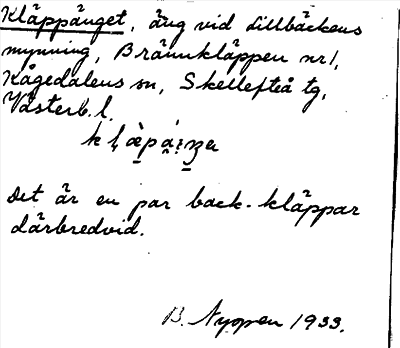 Kläppänget, äng vid Lillbäckens
mynning, Brännkläppen nr 1,
Kågedalens sn, Skellefteå tg,
Västerb. l.
Det är en par back-kläppar
därbredvid.
B. Nyopen 1933.